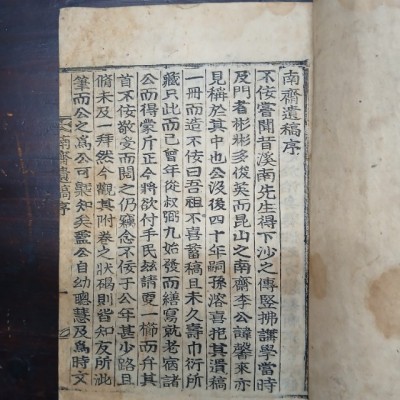 南齋遺稿序
不佞嘗聞昔溪南先生得下沙之傳竪拂講學當時
及門者彬彬多俊英而昆山之南齋李公諱馨來亦
見稱於其中也公沒後四十年嗣孫溶喜抱其遺稿
一冊而造不佞曰吾祖不喜蓄稿且未久壽巾衍所
藏只此而已曾年從叔弼九始發而繕寫就老宿諸
公而得蒙斤正今將欲付手民玆請更一櫛而弁其
首不佞敬受而閱之仍竊念不佞于公年甚少路且
脩未及一拜然今觀其附卷之狀碣則皆知友所泚
筆而公之爲公可槩知矣蓋公自幼聰慧及爲時文
南齋遺稿序
一